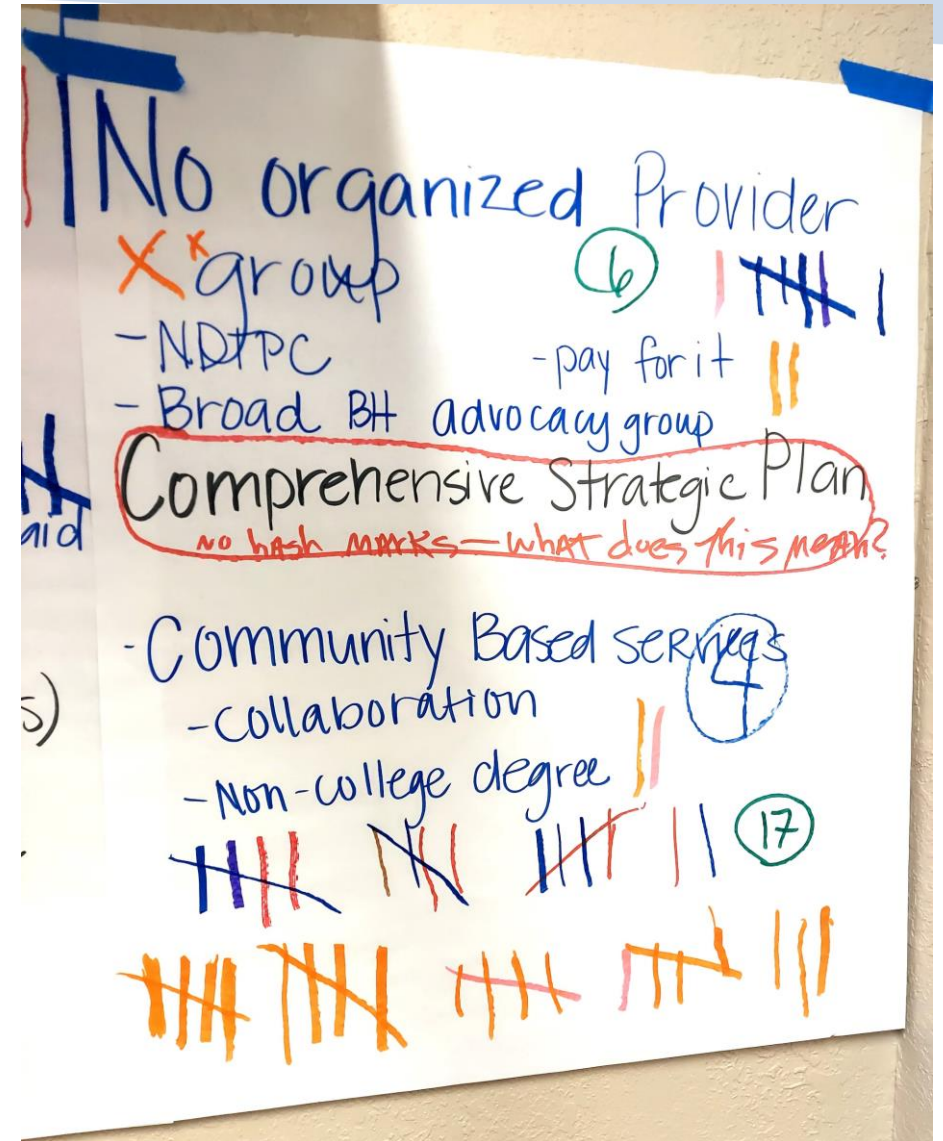 No organized Provider
X x group 6
- NDTPC - pay for it
- Broad BH advocacy group
Comprehensive Strategic Plan
No hash marks — what does this mean?
- Community Based services 4
- collaboration
- Non-college degree
17
aid
s)